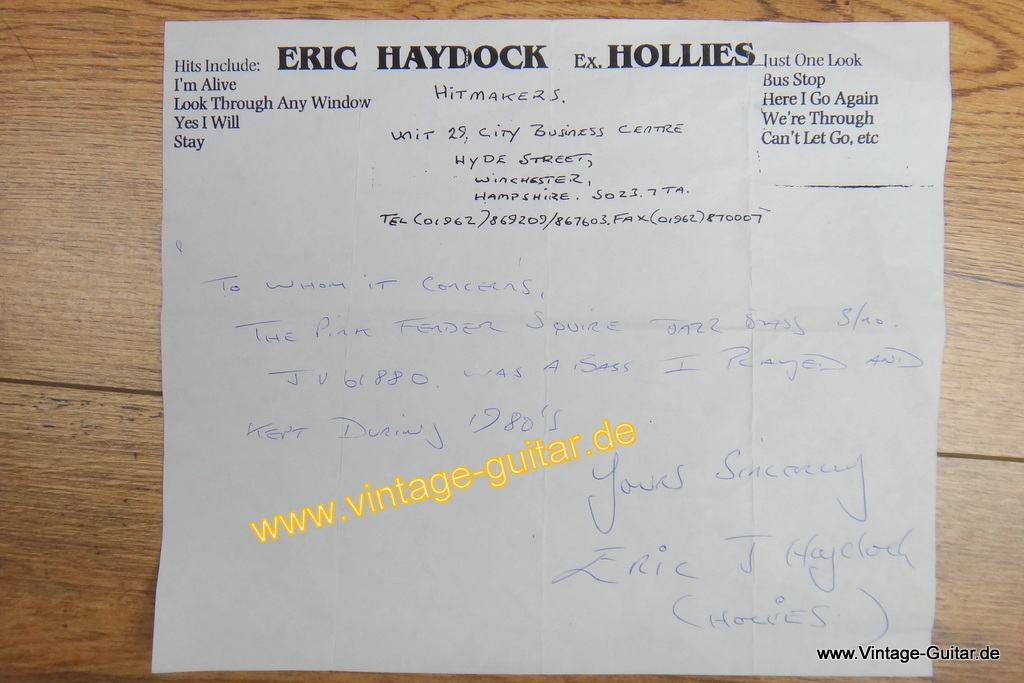 Hits Include: ERIC HAYDOCK Ex. HOLLIES Just One Look
I'm Alive
Look Through Any Window
Yes I Will
Stay
Bus Stop
Here I Go Again
We're Through
Can't Let Go, etc
HITMAKERS.
UNIT 29, CITY BUSINESS CENTRE
HYDE STREET,
WINCHESTER,
HAMPSHIRE. SO23.7TA.
TEL (01962)869209/867603. FAX (01962)870007
TO WHOM IT CONCERNS,
THE PINK FENDER SQUIRE JAZZ BASS S/NO.
JV61880. WAS A BASS I PLAYED AND
KEPT DURING 1980'S
www.vintage-guitar.de
YOURS SINCERELY
ERIC J Haydock
(HOLLIES.)
www.Vintage-Guitar.de